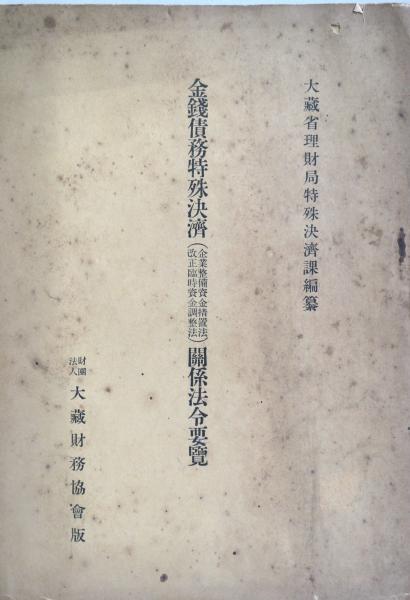 大藏省理財局特殊決濟課編纂
金錢債務特殊決濟(企業整備資金措置法改正臨時資金調整法)關係法令要覽
財團法人 大藏財務協會版